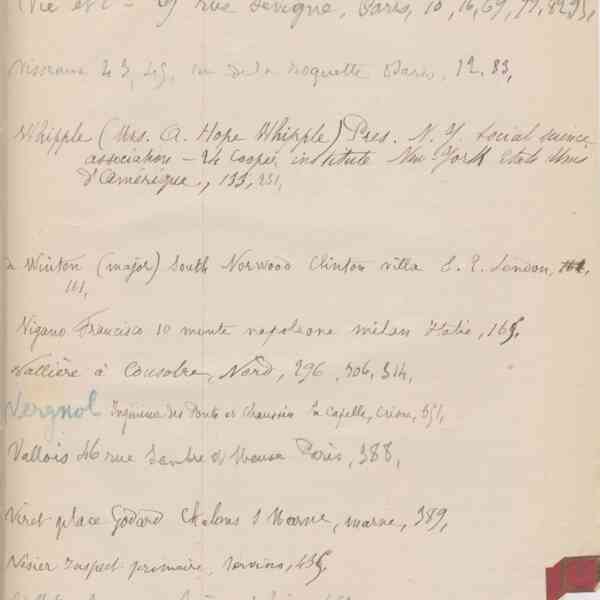 rue Sévigné, Paris, 10, 16, 69, 77,
rue de la Roquette Paris, 12, 83,
Whipple (Mrs. A. Hope Whipple) Pres. N. Y. social science
association - 24 Cooper institute New York Etats Unis
d'Amérique, 133, 231,
Winton (major) South Norwood Clinton villa S. E. London, 161,
161,
Vigano Francisco 10 monte napoleone milan Italie, 165,
Vallière à Cousolre, Nord, 296, 306, 314,
Vergnol Ingénieur des Ponts et Chaussées La Capelle,
Vallois 46 rue Sambre et Meuse Paris, 388,
Viret place Godard Chalons s Marne, marne, 389,
Inspect primaire, Vervins, 435,